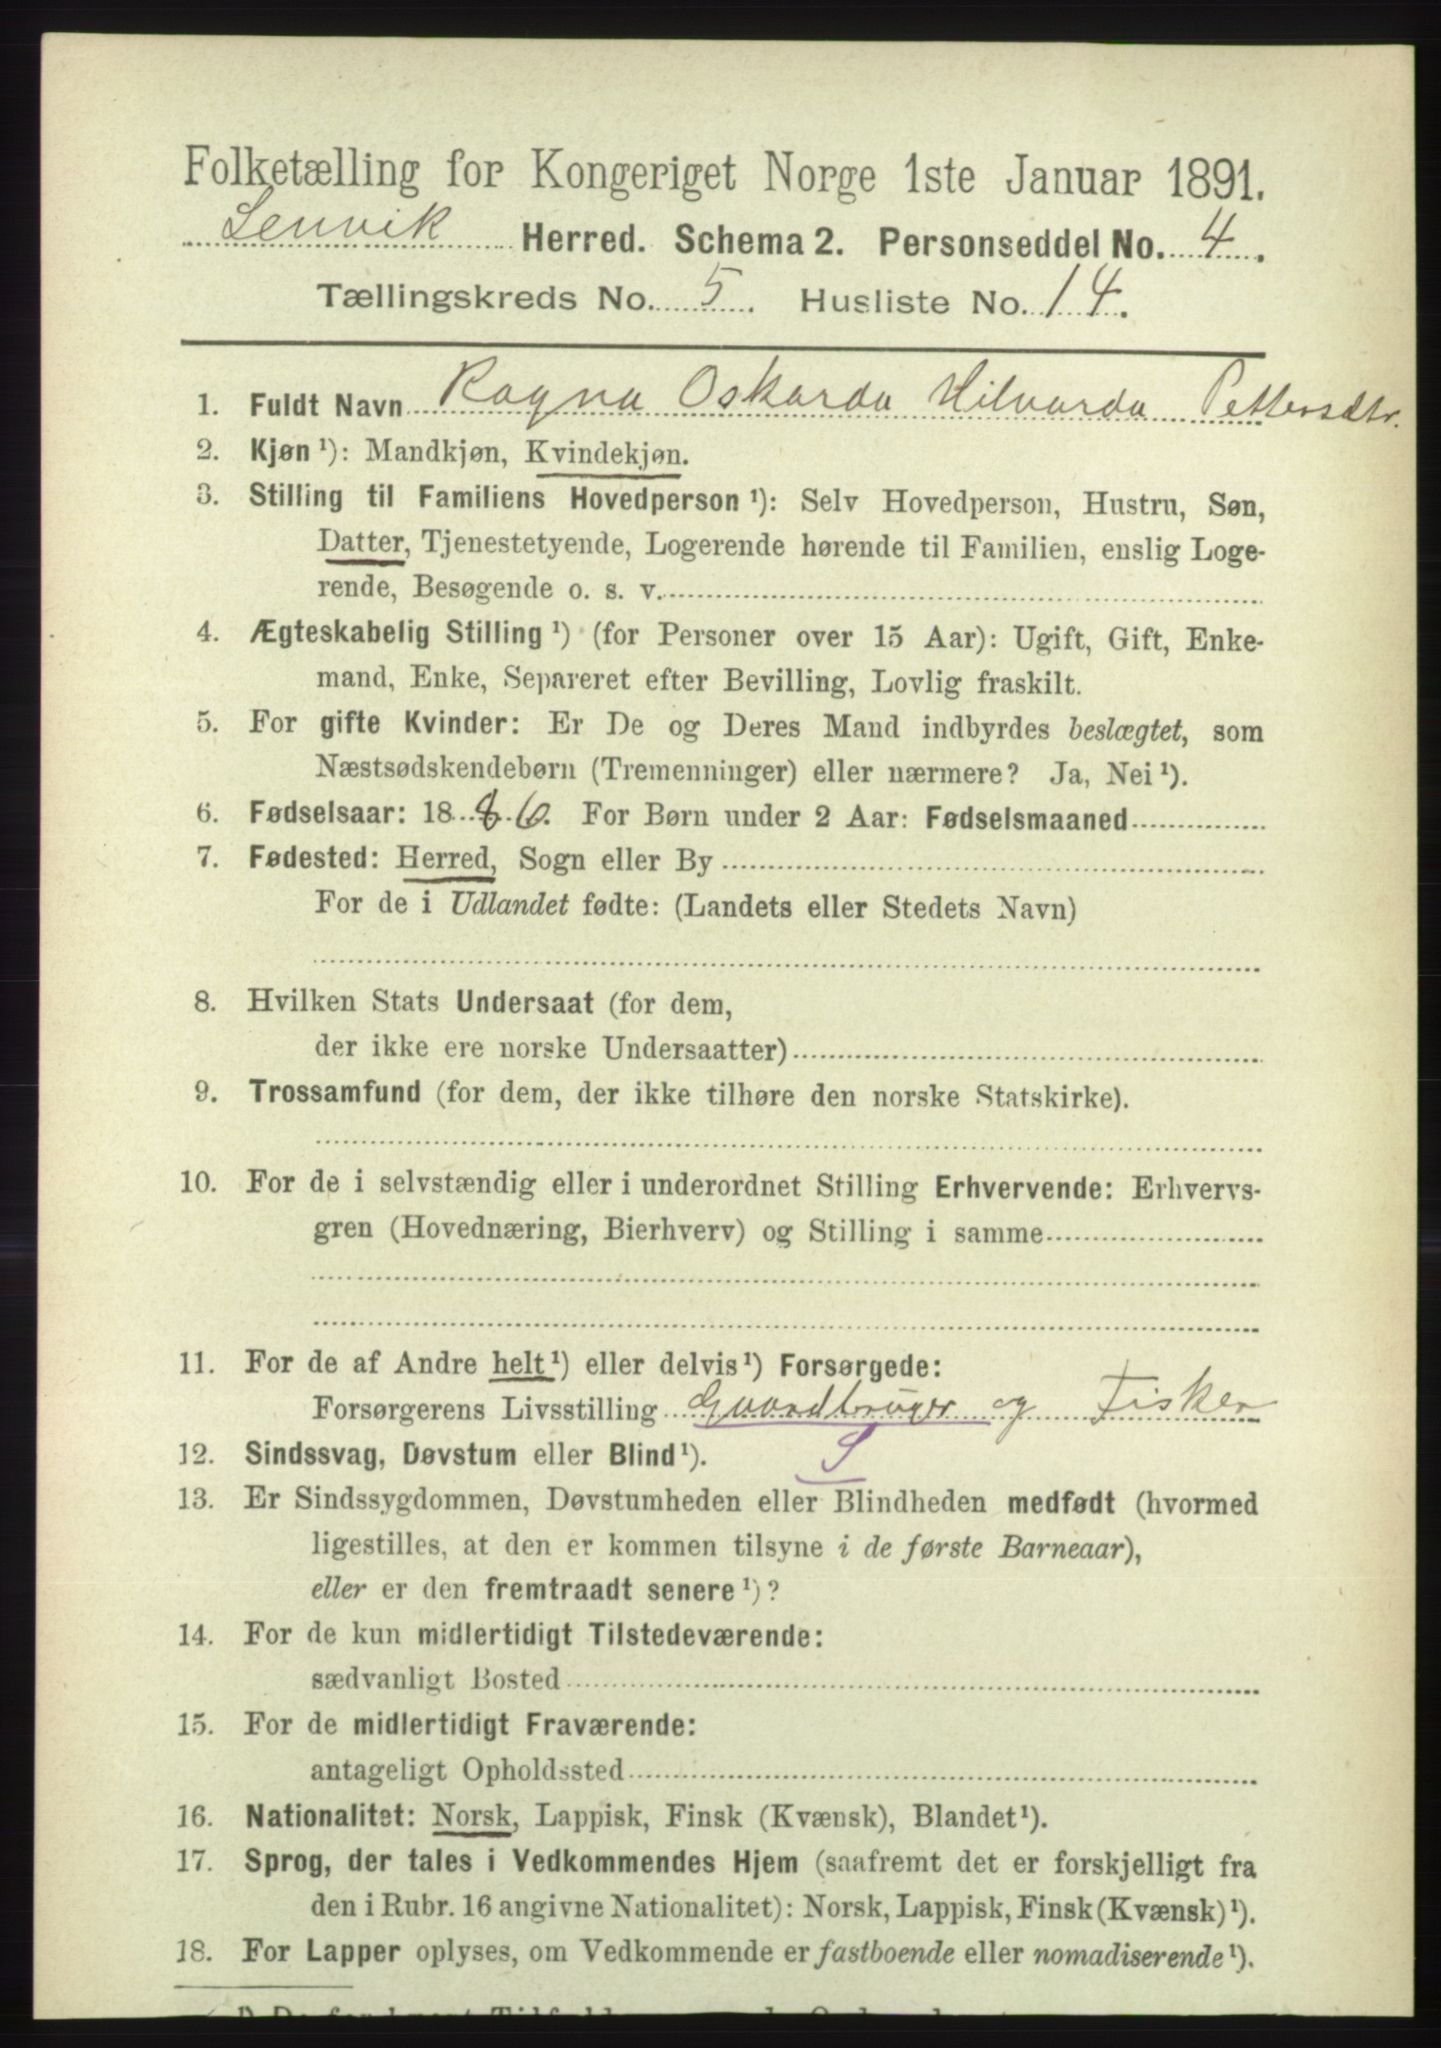 Folketælling for Kongeriget Norge 1ste Januar 1891.
Lenvik Herred. Schema 2. Personseddel No. 4.
Tællingskreds No. 5. Husliste No. 14.
1. Fuldt Navn Ragna Oskarda Hilvarda Pettersdtr.
2. Kjøn ¹): Mandkjøn, Kvindekjøn.
3. Stilling til Familiens Hovedperson ¹): Selv Hovedperson, Hustru, Søn,
Datter, Tjenestetyende, Logerende hørende til Familien, enslig Loge-
rende, Besøgende o. s. v.
4. Ægteskabelig Stilling ¹) (for Personer over 15 Aar): Ugift, Gift, Enke-
mand, Enke, Separeret efter Bevilling, Lovlig fraskilt.
5. For gifte Kvinder: Er De og Deres Mand indbyrdes beslægtet, som
Næstsødskendebørn (Tremenninger) eller nærmere? Ja, Nei ¹).
6. Fødselsaar: 1886. For Børn under 2 Aar: Fødselsmaaned
7. Fødested: Herred, Sogn eller By
For de i Udlandet fødte: (Landets eller Stedets Navn)
8. Hvilken Stats Undersaat (for dem,
der ikke ere norske Undersaatter)
9. Trossamfund (for dem, der ikke tilhøre den norske Statskirke).
10. For de i selvstændig eller i underordnet Stilling Erhvervende: Erhvervs-
gren (Hovednæring, Bierhverv) og Stilling i samme
11. For de af Andre helt ¹) eller delvis ¹) Forsørgede:
Forsørgerens Livsstilling Gaardbruger og Fisker
12. Sindssvag, Døvstum eller Blind ¹). S
13. Er Sindssygdommen, Døvstumheden eller Blindheden medfødt (hvormed
ligestilles, at den er kommen tilsyne i de første Barneaar),
eller er den fremtraadt senere ¹)?
14. For de kun midlertidigt Tilstedeværende:
sædvanligt Bosted
15. For de midlertidigt Fraværende:
antageligt Opholdssted
16. Nationalitet: Norsk, Lappisk, Finsk (Kvænsk), Blandet ¹).
17. Sprog, der tales i Vedkommendes Hjem (saafremt det er forskjelligt fra
den i Rubr. 16 angivne Nationalitet): Norsk, Lappisk, Finsk (Kvænsk) ¹).
18. For Lapper oplyses, om Vedkommende er fastboende eller nomadiserende ¹).